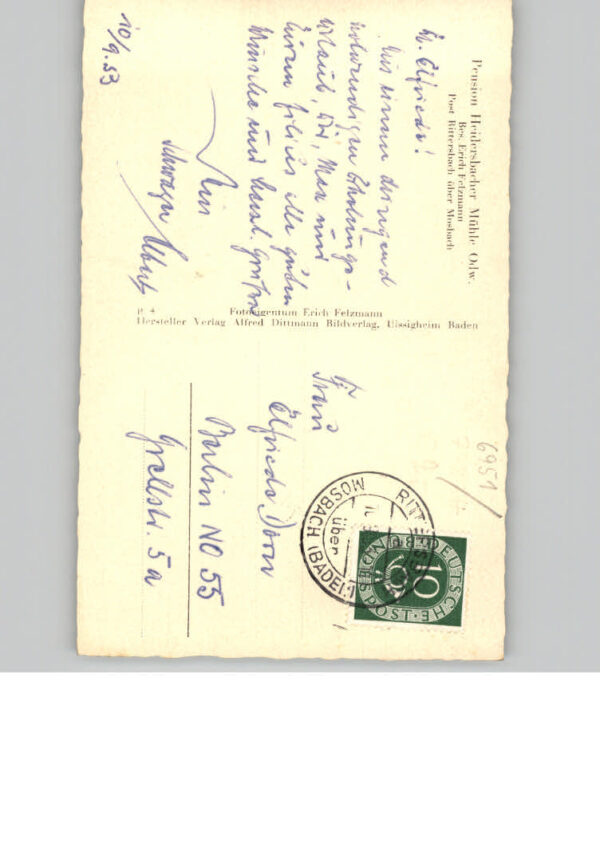 Pension Heidersbacher Mühle Odw.
Bes. Erich Felzmann
Post Rittersbach über Mosbach
Lb. Elfriede!
Aus einem dringend
notwendigen Erholungs-
urlaub, Dir, Max und
Euren filius alle guten
Wünsche und herzl. Grüße
Dein
Schwager Albert
10/9.53
P. 4
Fotoeigentum Erich Felzmann
Hersteller Verlag Alfred Dittmann Bildverlag, Uissigheim Baden
Frau
Elfriede Dorn
Berlin NO 55
Grellstr. 5a
6951
RITTERSBACH
über
MOSBACH (BADEN)
DEUTSCHE BUNDESPOST
10